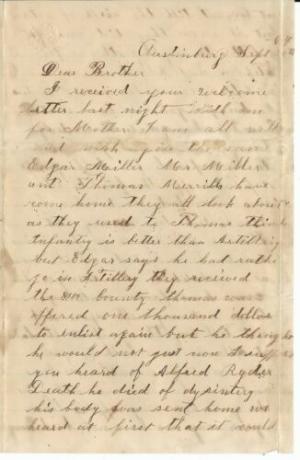 Austinburg Sept
Dear Brother
I received your welcome
letter last night with one
for Mother I am all well
and wish you the same
Edgar Miller Mr Miller
and Thomas Merrills have
come home they all look about
as they used to Thomas thinks
Infantry is better than Artillery
but Edgar says he had rather
go in Artillery they received
the County thomas was
offered one thousand dollars
to enlist again but he thought
he would not just now I suppose
you heard of Alfred Ryder
Death he died of dysintery
his body was sent home we
heard at first that it would